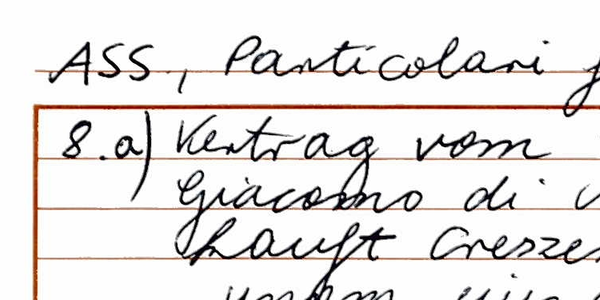 ASS., Particolari
8.a) Vertrag vom
Giacomo di
kauft Creszen